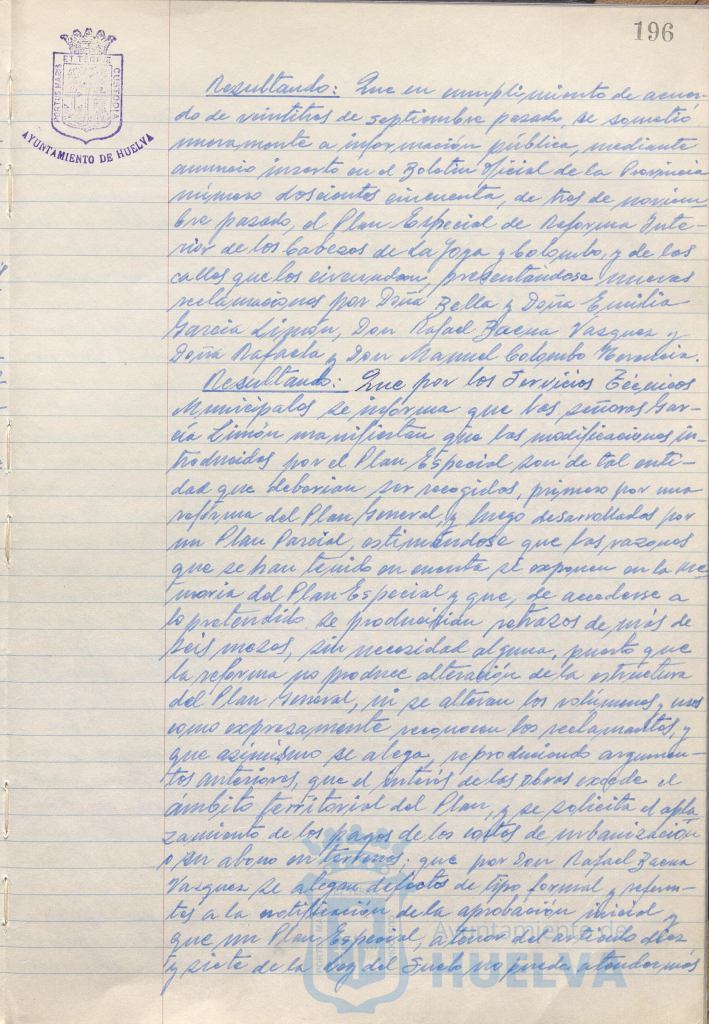 196
PORTUS MARIS
ET TERRÆ
CUSTODIA
AYUNTAMIENTO DE HUELVA
Resultando: Que en cumplimiento de acuer-
do de veintitres de septiembre pasado, se sometió
nuevamente a información pública, mediante
anuncio inserto en el Boletín Oficial de la Provincia
número doscientos cincuenta, de tres de noviem-
bre pasado, el Plan Especial de Reforma Inte-
rior de los Cabezos de La Joya y Colombo, y de las
calles que los circundan, presentándose nuevas
reclamaciones por Doña Bella y Doña Emilia
García Limón, Don Rafael Baena Vazquez y
Doña Rafaela y Don Manuel Colombo Herencia.
Resultando: Que por los Servicios Técnicos
Municipales se informa que las señoras Gar-
cía Limón manifiestan que las modificaciones in-
troducidas por el Plan Especial son de tal enti-
dad que deberían ser recogidas, primero por una
reforma del Plan General, y luego desarrolladas por
un Plan Parcial, estimándose que las razones
que se han tenido en cuenta se exponen en la me-
moria del Plan Especial y que, de accederse a
lo pretendido se producirían retrazos de más de
seis meses, sin necesidad alguna, puesto que
la reforma no produce alteración de la estructura
del Plan General, ni se alteran los volúmenes y usos
como expresamente reconocen los reclamantes, y
que asimismo se alega, reproduciendo argumen-
tos anteriores, que el interés de las obras excede el
ámbito territorial del Plan, y se solicita el apla
zamiento de los pagos de los costos de urbanización
o su abono en terrenos; que por Don Rafael Baena
Vazquez se alegan defectos de tipo formal y referen-
tes a la notificación de la aprobación inicial, y
que un Plan Especial, a tenor del artículo diez
y siete de la Ley del Suelo no puede atender más
Ayuntamiento de
HUELVA